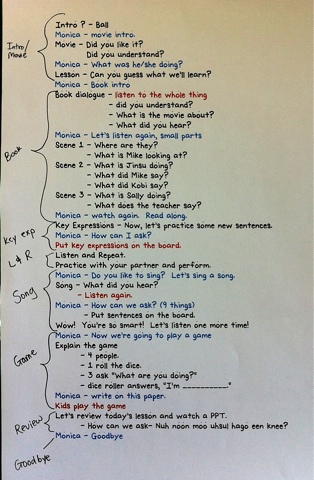 Intro ? - Ball
Monica - movie intro.
Intro/
Movie
Movie - Did you like it?
Did you understand?
Monica - What was he/she doing?
Lesson - Can you guess what we'll learn?
Monica - Book intro
Book
Book dialogue - listen to the whole thing
- did you understand?
- What is the movie about?
- What did you hear?
Monica - Let's listen again, small parts
Scene 1 - Where are they?
- What is Mike looking at?
Scene 2 - What is Jinsu doing?
- What did Mike say?
- What did Kobi say?
Scene 3 - What is Sally doing?
- What does the teacher say?
Monica - watch again. Read along.
Key exp
Key Expressions - Now, let's practice some new sentences.
Monica - How can I ask?
Put key expressions on the board.
L & R
Listen and Repeat.
Practice with your partner and perform.
Song
Monica - Do you like to sing? Let's sing a song.
Song - What did you hear?
- Listen again.
Monica - How can we ask? (9 things)
- Put sentences on the board.
Wow! You're so smart! Let's listen one more time!
Game
Monica - Now we're going to play a game
Explain the game
- 4 people.
- 1 roll the dice.
- 3 ask "What are you doing?"
- dice roller answers, "I'm __________."
Monica - write on this paper.
Kids play the game
Review
Let's review today's lesson and watch a PPT.
- How can we ask- Nuh noon moo uhsul hago een knee?
Goodbye
Monica - Goodbye